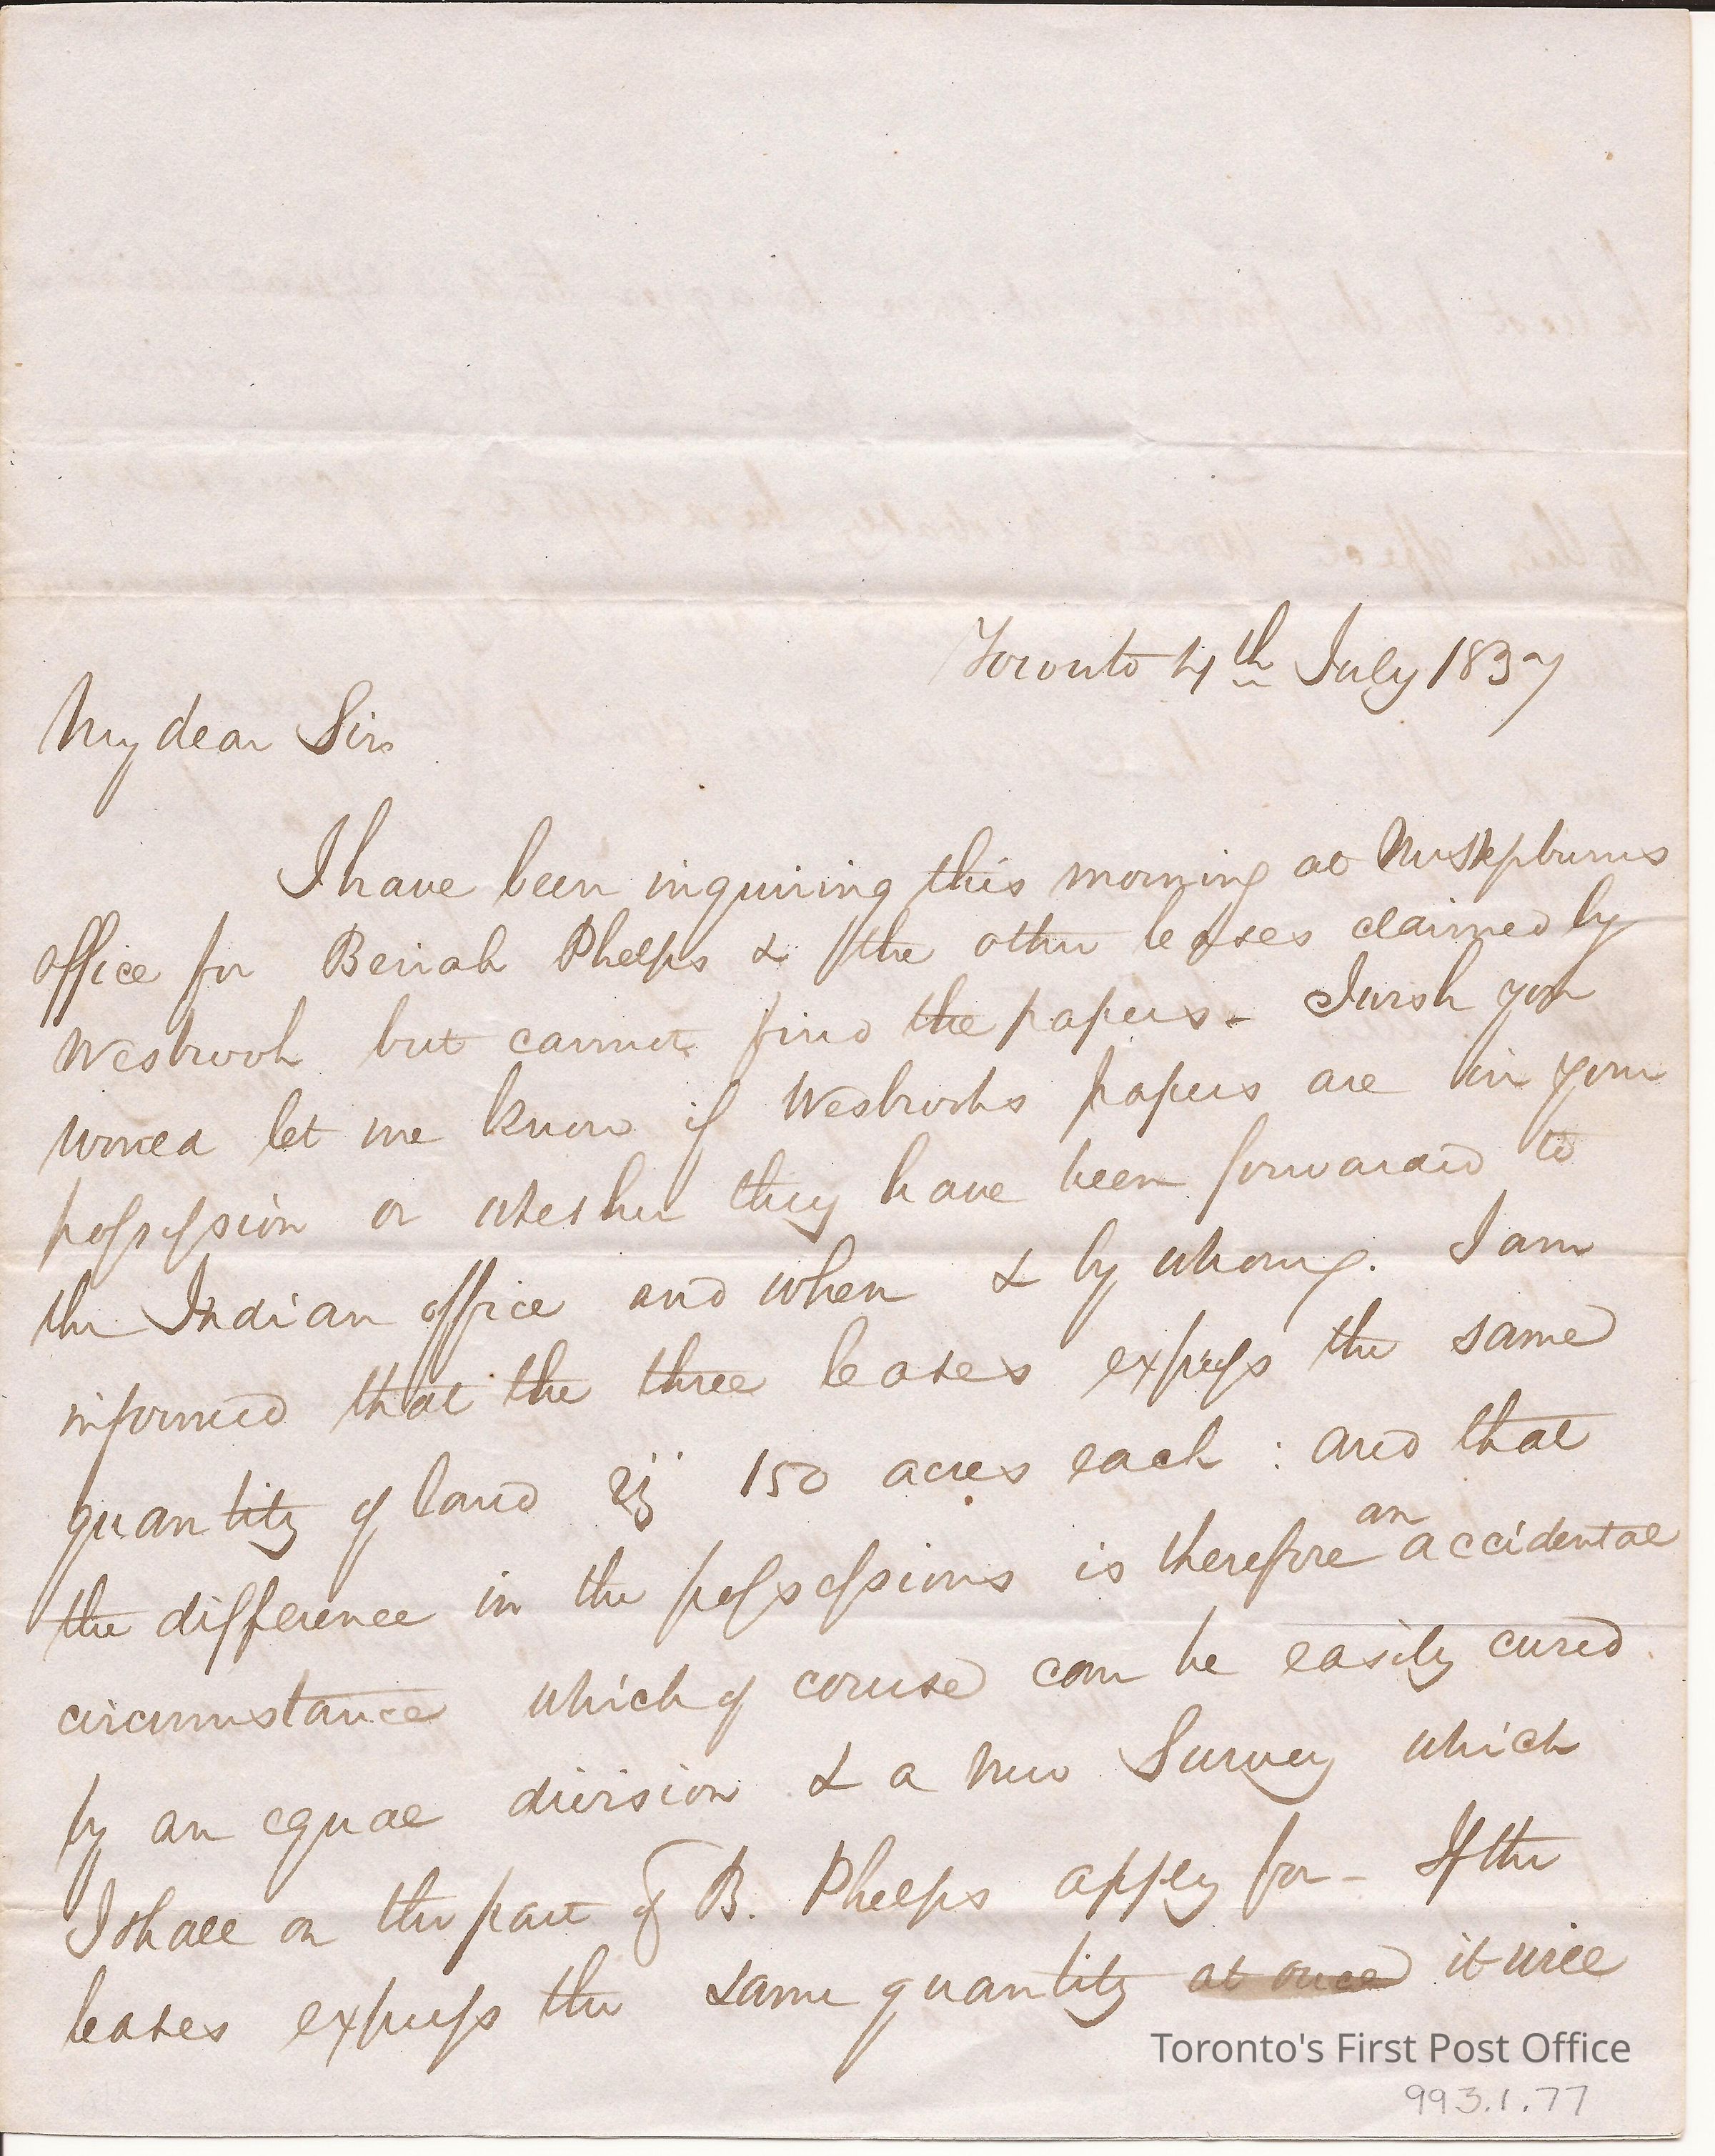 Toronto 4th July 1837
My dear Sir
I have been inquiring this morning at Mr Hepburns
office for Beriah Phelps & the other leases claimed by
Wesbrook but cannot find the papers - I wish you
would let me know if Wesbrooks papers are in your
possession or whether they have been forwarded to
the Indian office and when & by whom. I am
informed that the three leases express the same
quantity of land viz 150 acres each : and that
the difference in the possessions is therefore an accidental
circumstance which of course can be easily cured
by an equal division & a new Survey which
I shall on the part of B. Phelps apply for - If the
leases express the same quantity at once it will
Toronto's First Post Office
993.1.77